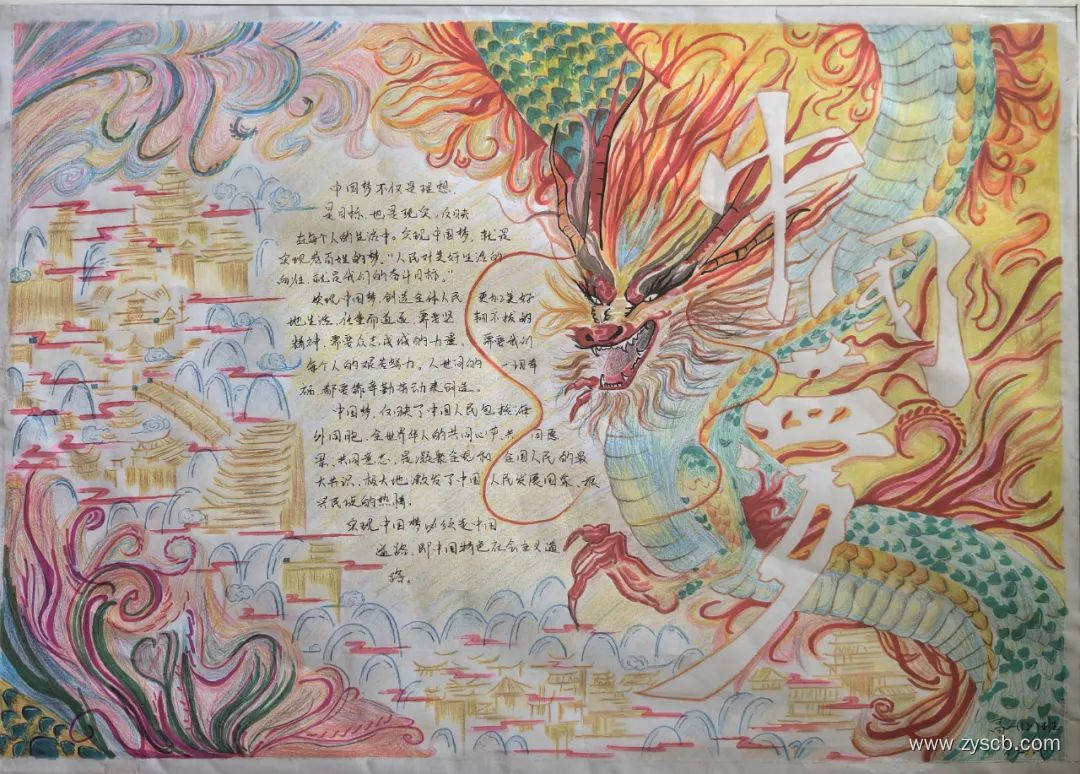 中国梦
中国梦不仅是理想,
是目标,也是现实,反映
在每个人的生活中。实现中国梦,就是
实现老百姓的梦。"人民对美好生活的
向往,就是我们的奋斗目标。"
实现中国梦,创造全体人民 更加美好
地生活,任重而道远,需要坚 韧不拔的
精神,需要众志成城的力量, 需要我们
每个人的艰苦努力。人世间的 一切幸
福,都要靠辛勤劳动来创造。
中国梦,反映了中国人民包括海
外同胞、全世界华人的共同心声、共 同愿
景、共同意志,是凝聚全党和 全国人民的最
大共识,极大地激发了中国 人民发展国家、振
兴民族的热情。
实现中国梦必须走中国
道路,即中国特色社会主义道
路。
www.zyscb.com